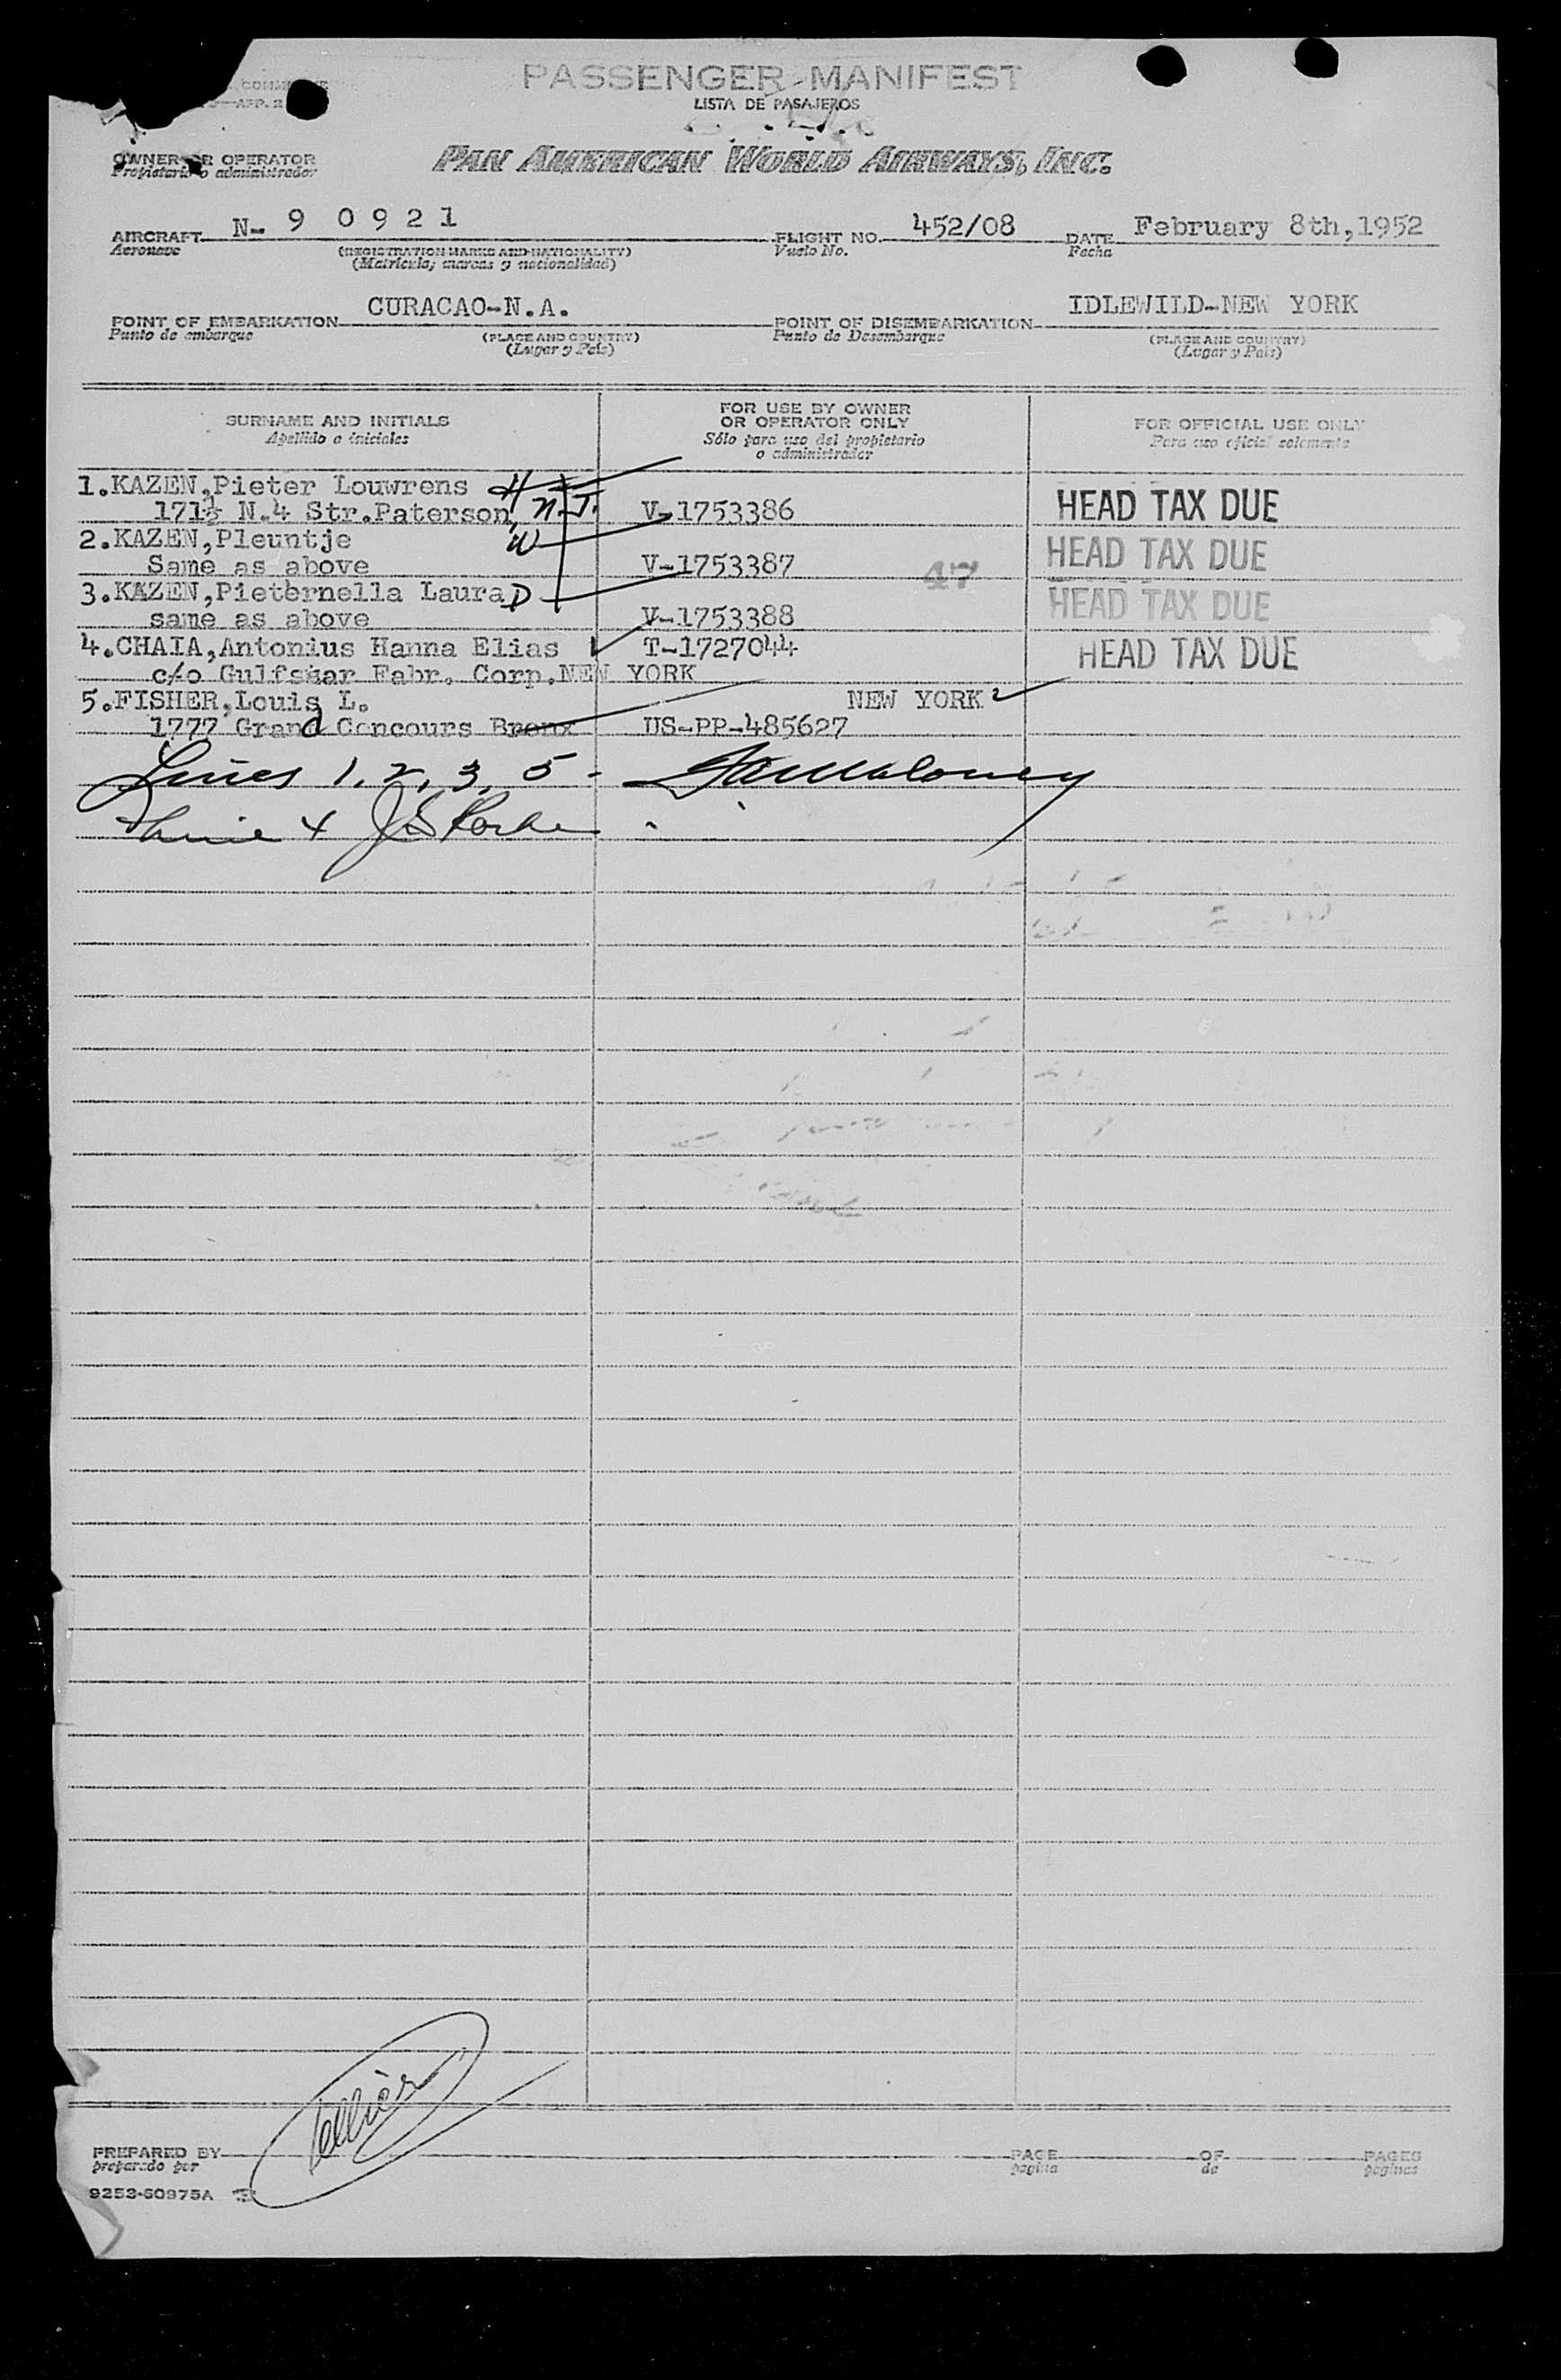 PASSENGER MANIFEST
LISTA DE PASAJEROS
APP. 2
OWNER OR OPERATOR
Propietario o administrador
PAN AMERICAN WORLD AIRWAYS, INC.
AIRCRAFT N- 9 0 9 2 1 FLIGHT NO. 452/08 DATE February 8th,1952
Aeronave (REGISTRATION MARKS AND NATIONALITY) Vuelo No. Fecha
(Matricula; marcas y nacionalidad)
POINT OF EMBARKATION CURACAO-N.A. POINT OF DISEMBARKATION IDLEWILD-NEW YORK
Punto de embarque (PLACE AND COUNTRY) Punto de Desembarque (PLACE AND COUNTRY)
(Lugar y País) (Lugar y País)
SURNAME AND INITIALS
Apellido e iniciales
FOR USE BY OWNER
OR OPERATOR ONLY
Sólo para uso del propietario
o administrador
FOR OFFICIAL USE ONLY
Para uso oficial solamente
1.KAZEN,Pieter Louwrens H
171½ N.4 Str.Paterson, N.J. V-1753386 HEAD TAX DUE
2.KAZEN,Pleuntje W
Same as above V-1753387 47 HEAD TAX DUE
3.KAZEN,Pieternella Laura D
same as above V-1753388 HEAD TAX DUE
4.CHAIA,Antonius Hanna Elias T-1727044 HEAD TAX DUE
c/o Gulfstar Fabr. Corp.NEW YORK
5.FISHER,Louis L. NEW YORK
1777 Grand Concours Bronx US-PP-485627
Lines 1, 2, 3, 5 - Maloney
Line 4
PREPARED BY PAGE OF PAGES
preparado por pagina de paginas
9253-60975A